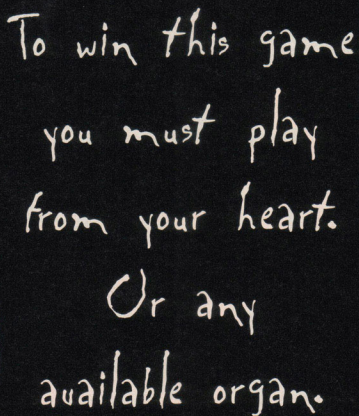 To win this game
you must play
from your heart.
Or any
available organ.